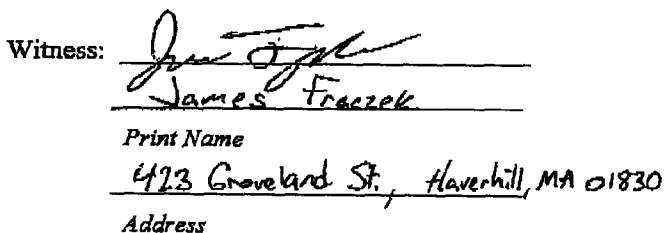 Witness:
James Fraczek
Print Name
423 Groveland St., Haverhill, MA 01830
Address